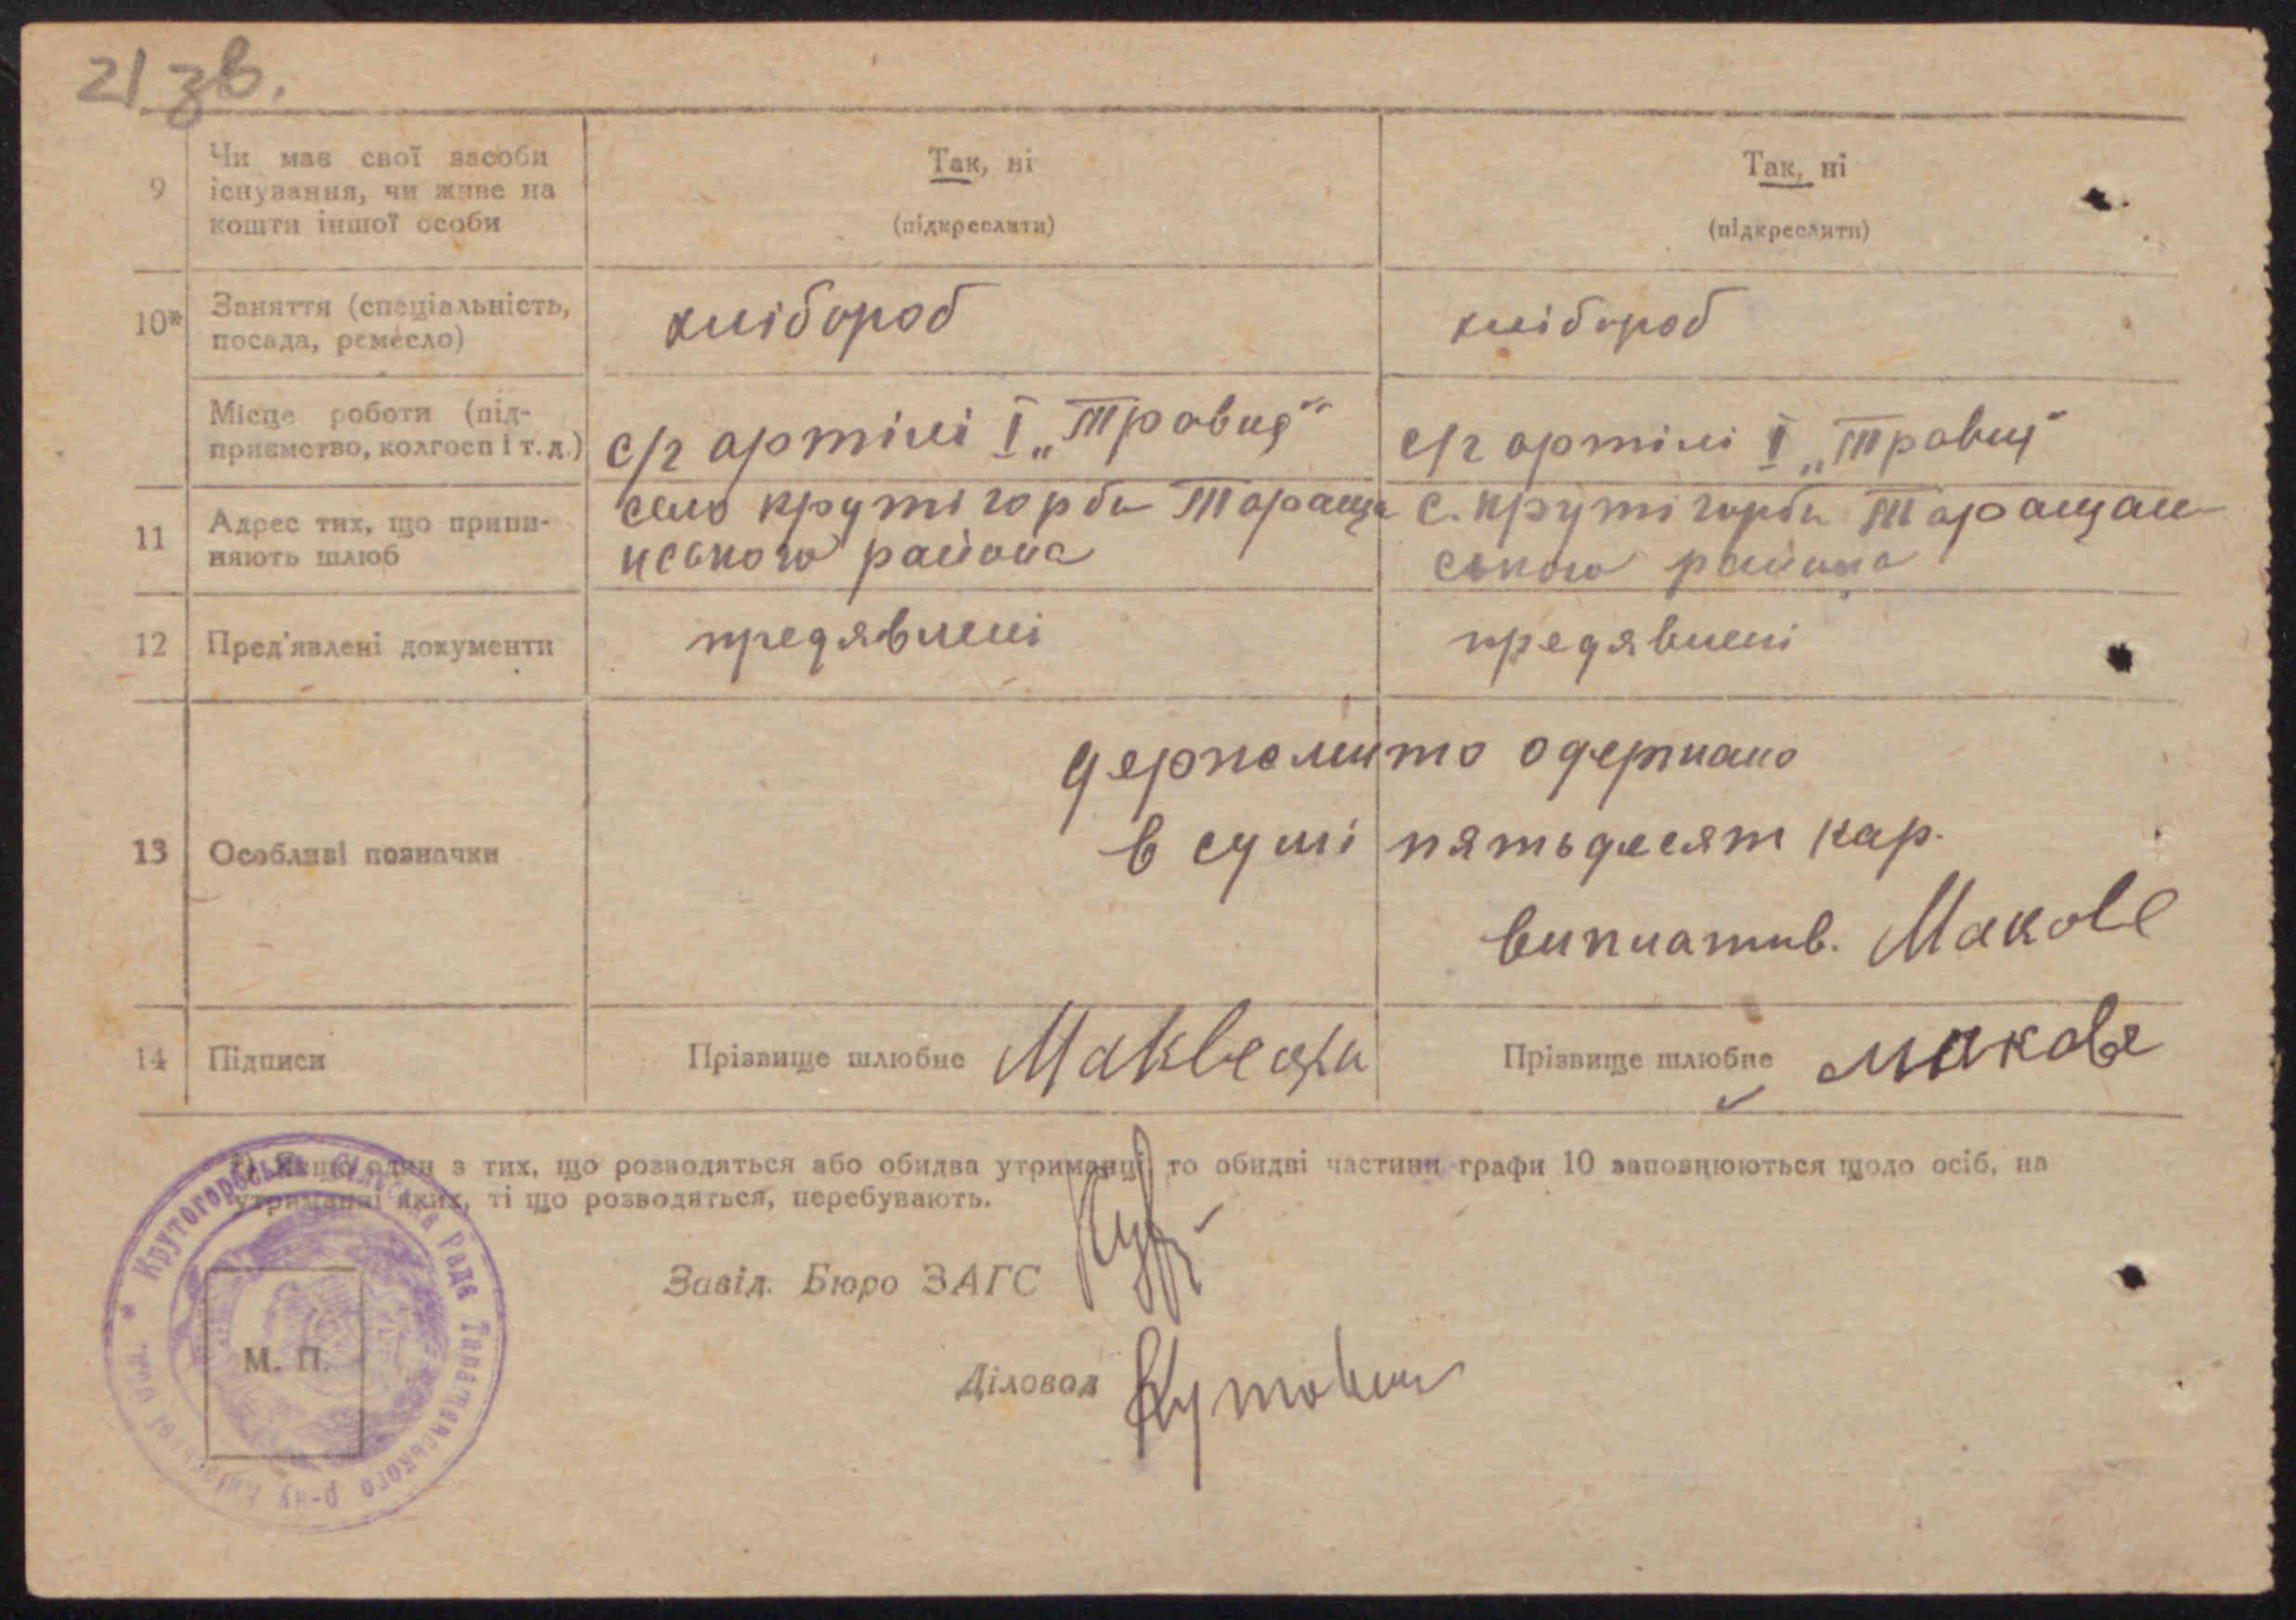 21 зв.
9 Чи має свої засоби існування, чи живе на кошти іншої особи
Так, ні
(підкреслити)
Так, ні
(підкреслити)
10* Заняття (спеціальність, посада, ремесло)
хлібороб
хлібороб
Місце роботи (підприємство, колгосп і т. д.)
с/г артілі І „Травня"
с/г артілі І „Травня"
11 Адрес тих, що припиняють шлюб
село круті горби Тараща
нського района
с. круті горби Таращан
ського района
12 Пред'явлені документи
предявлені
предявлені
13 Особливі позначки
держмито одержано
в сумі пятьдесят кар.
виплатив. Макове
14 Підписи
Прізвище шлюбне
Прізвище шлюбне Макове
*) Якщо один з тих, що розводяться або обидва утриманці, то обидві частини графи 10 заповнюються щодо осіб, на
утриманні яких, ті що розводяться, перебувають.
Завід. Бюро ЗАГС
Діловод
М. П.
Крутогорбська Сільська Рада Таращанського р-ну Київської обл.